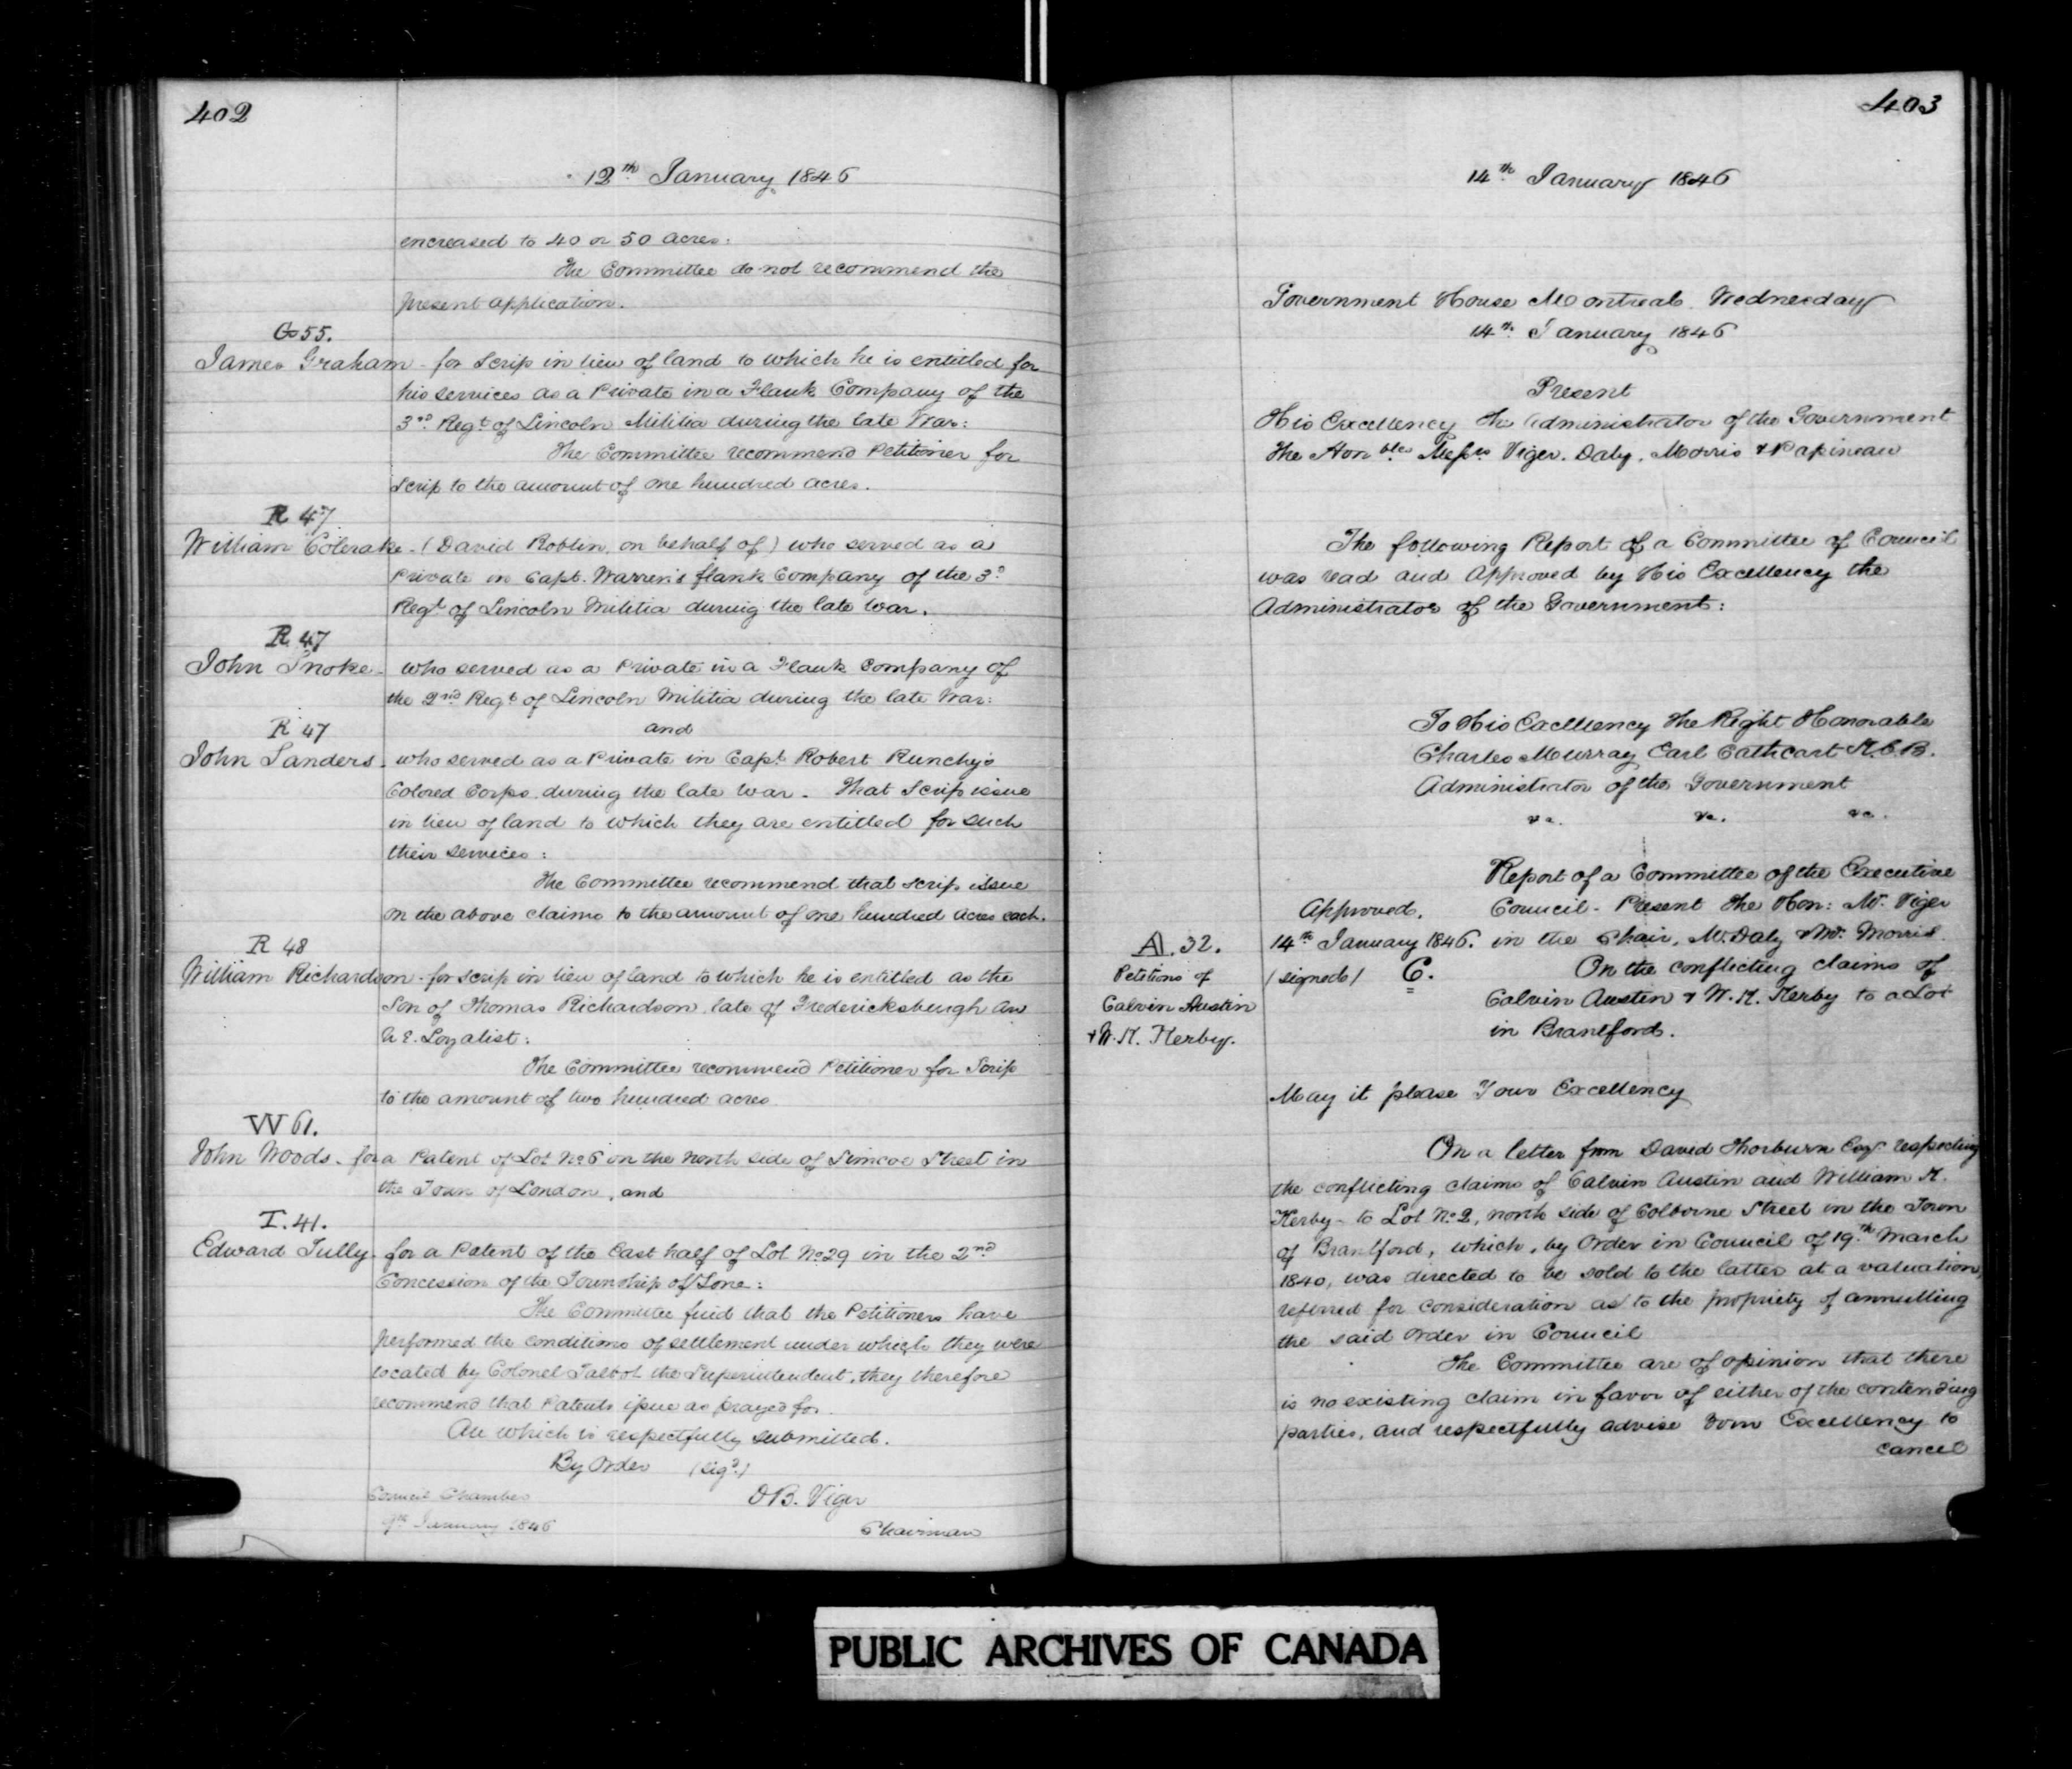 402
12th January 1846
increased to 40 or 50 acres:
The Committee do not recommend the
present application.
G 55.
James Graham - for Scrip in lieu of land to which he is entitled for
his services as a Private in a Flank Company of the
3rd Regt of Lincoln Militia during the late War:
The Committee recommend Petitioner for
scrip to the amount of one hundred acres.
R 47
William Colerake - (David Roblin, on behalf of) who served as a
Private in Capt. Warren's flank Company of the 3d
Regt of Lincoln Militia during the late War.
R 47
John Snoke - who served as a Private in a Flank Company of
the 2nd Regt of Lincoln Militia during the late War:
R 47
and
John Sanders - who served as a Private in Capt Robert Runchy's
Colored Corps during the late War. That Scrip issue
in lieu of land to which they are entitled for such
their services:
The Committee recommend that scrip issue
on the above claims to the amount of one hundred acres each.
R 48
William Richardson - for scrip in lieu of land to which he is entitled as the
Son of Thomas Richardson late of Fredericksburgh an
U E. Loyalist:
The Committee recommend Petitioner for Scrip
to the amount of two hundred acres
W 61.
John Woods - for a Patent of Lot No 6 on the North side of Simcoe Street in
the Town of London, and
T. 41.
Edward Tully - for a Patent of the East half of Lot No 29 in the 2nd
Concession of the Township of Zone:
The Committee find that the Petitioners have
performed the conditions of settlement under which they were
located by Colonel Talbot the Superintendent, they therefore
recommend that Patents issue as prayed for.
All which is respectfully submitted.
By Order (sigd)
Council Chamber D B. Viger
9th January 1846 Chairman
403
14th January 1846
Government House Montreal Wednesday
14th January 1846
Present
His Excellency The Administrator of the Government
The Honble Messrs Viger. Daly. Morris & Papineau
The following Report of a Committee of Council
was read and Approved by His Excellency the
Administrator of the Government:
To His Excellency The Right Honorable
Charles Murray Earl Cathcart K.C.B.
Administrator of the Government
&c. &c. &c.
Report of a Committee of the Executive
Approved. Council - Present The Hon: Mr. Viger
A. 32. 14th January 1846. in the Chair, Mr. Daly & Mr. Morris
Petitions of (signed) C. On the conflicting claims of
Calvin Austin Calvin Austin & W. K. Kerby to a Lot
& W. K. Kerby. in Brantford.
May it please Your Excellency
On a letter from David Thorburn Esqr respecting
the conflicting claims of Calvin Austin and William K.
Kerby - to Lot No 2, north side of Colborne Street in the Town
of Brantford, which, by Order in Council of 19th March
1840, was directed to be sold to the latter at a valuation,
referred for consideration as to the propriety of annulling
the said Order in Council
The Committee are of opinion that there
is no existing claim in favor of either of the contending
parties, and respectfully advise Your Excellency to
cancel
PUBLIC ARCHIVES OF CANADA